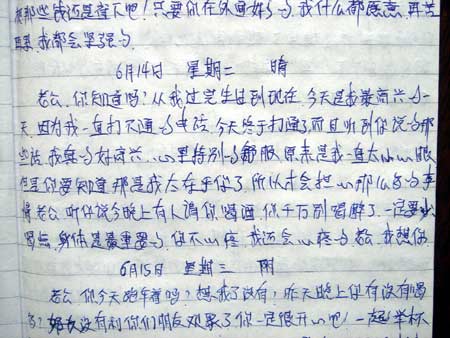 那些我还是留下吧！只要你在外面好的，我什么都愿意，再苦
再累，我都会坚强的。
6月14日 星期二 晴
老公，你知道吗？从我过完生日到现在，今天是我最高兴的一
天，因为我一直打不通的电话，今天终于打通了而且听到你说的那
些话，我真的好高兴，心里特别的舒服，原来是我一直太小心眼
但是你要知道，那是我太在乎你了，所以才会担心那么多的事
情老公，听你说今晚上有人请你喝酒，你千万别喝醉了，一定要少
喝点，身体是最重要的，你不心疼，我还会心疼的，老公，我想你
6月15日 星期三 阴
老公，你今天跑车着吗？想我了没有？昨天晚上你有没有喝
多？没有利你们朋友观果了你一定很开心吧！一起举杯